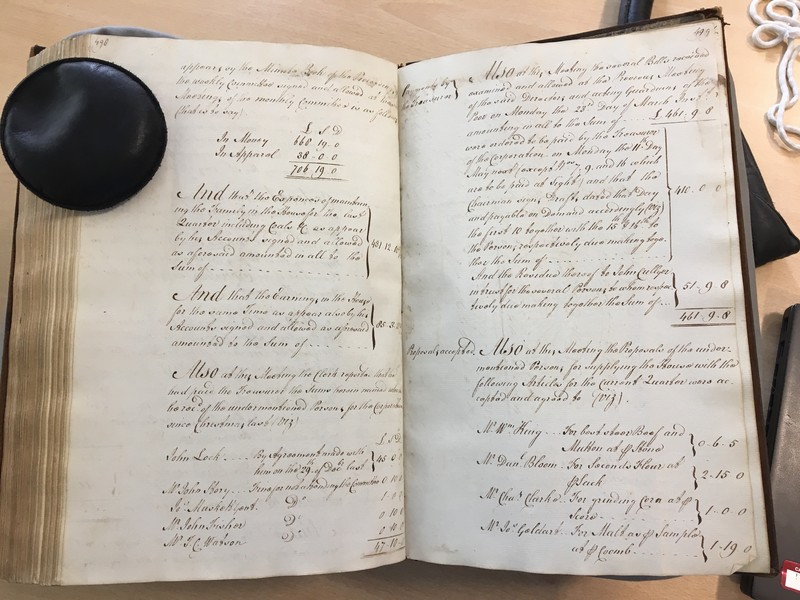 498
appears by the Minute Book of the
the weekly Committees signed and allowed at
Meetings of the monthly Committees is as
(that is to say)
£ S D
In Money 668 19 0
In Apparel 38 0 0
706 19 0
And that the Expences of maintain
ing the Family in the House for the last
Quarter including Coals &c as appears
by his Accounts signed and allowed
as aforesaid amounted in all to the
Sum of
And that the Earnings in the House
for the same time as appears also by his
Accounts signed and allowed as aforesaid
amounted to the Sum of
Also at this Meeting the Clerk reports that he
had paid the Treasurer the Sums hereon named
of the undermentioned Persons for the Corporation
since Christmas last (Viz)
£ S D
John Lock By Agreement made with
him on the 29th of Decr last 45 0 0
Mr John Story Fine for not attending the Committee
Do
Mr John Do
Mr J. C. Watson Do
47 10
499
Also at this Meeting the several Bills
examined and allowed at the Previous Meeting
of the said Directors and acting Guardians of the
Poor on Monday the 23rd Day of March Inst
amounting in all to the Sum of £ 461 - 9 - 8
were ordered to be paid by the Treasurer
of the Corporation on Monday the 11th Day
May next (except 9, and 16 which
are to be paid at Sight) and that the
Chairman sign Drafts dated this Day
and payable on Demand accordingly (Viz)
the first 10 together with the 15th & 16th to
the Persons respectively due making toge-
ther the Sum of 410 - 0 - 0
And the Residue thereof to John Cullyer
in trust for the several Persons to whom respec
tively due making together the Sum of 51 - 9 - 8
461 - 9 - 8
Proposals accepted. Also at this Meeting the Proposals of the under-
mentioned Persons for supplying the House with the
following Articles for the Current Quarter were ac-
cepted and agreed to (Viz).
Mr Wm King For best steer Beef and
Mutton at ⅌ Stone 0 - 6 - 5
Mr Danl Bloom For Seconds Flour at
⅌ Sack 2 - 15 - 0
Mr Chas Clarke For grinding Corn at ⅌
Score 1 - 0 - 0
Mr Jos Goldart For Malt as ⅌ Sample
at ⅌ Coomb 1 - 19 0